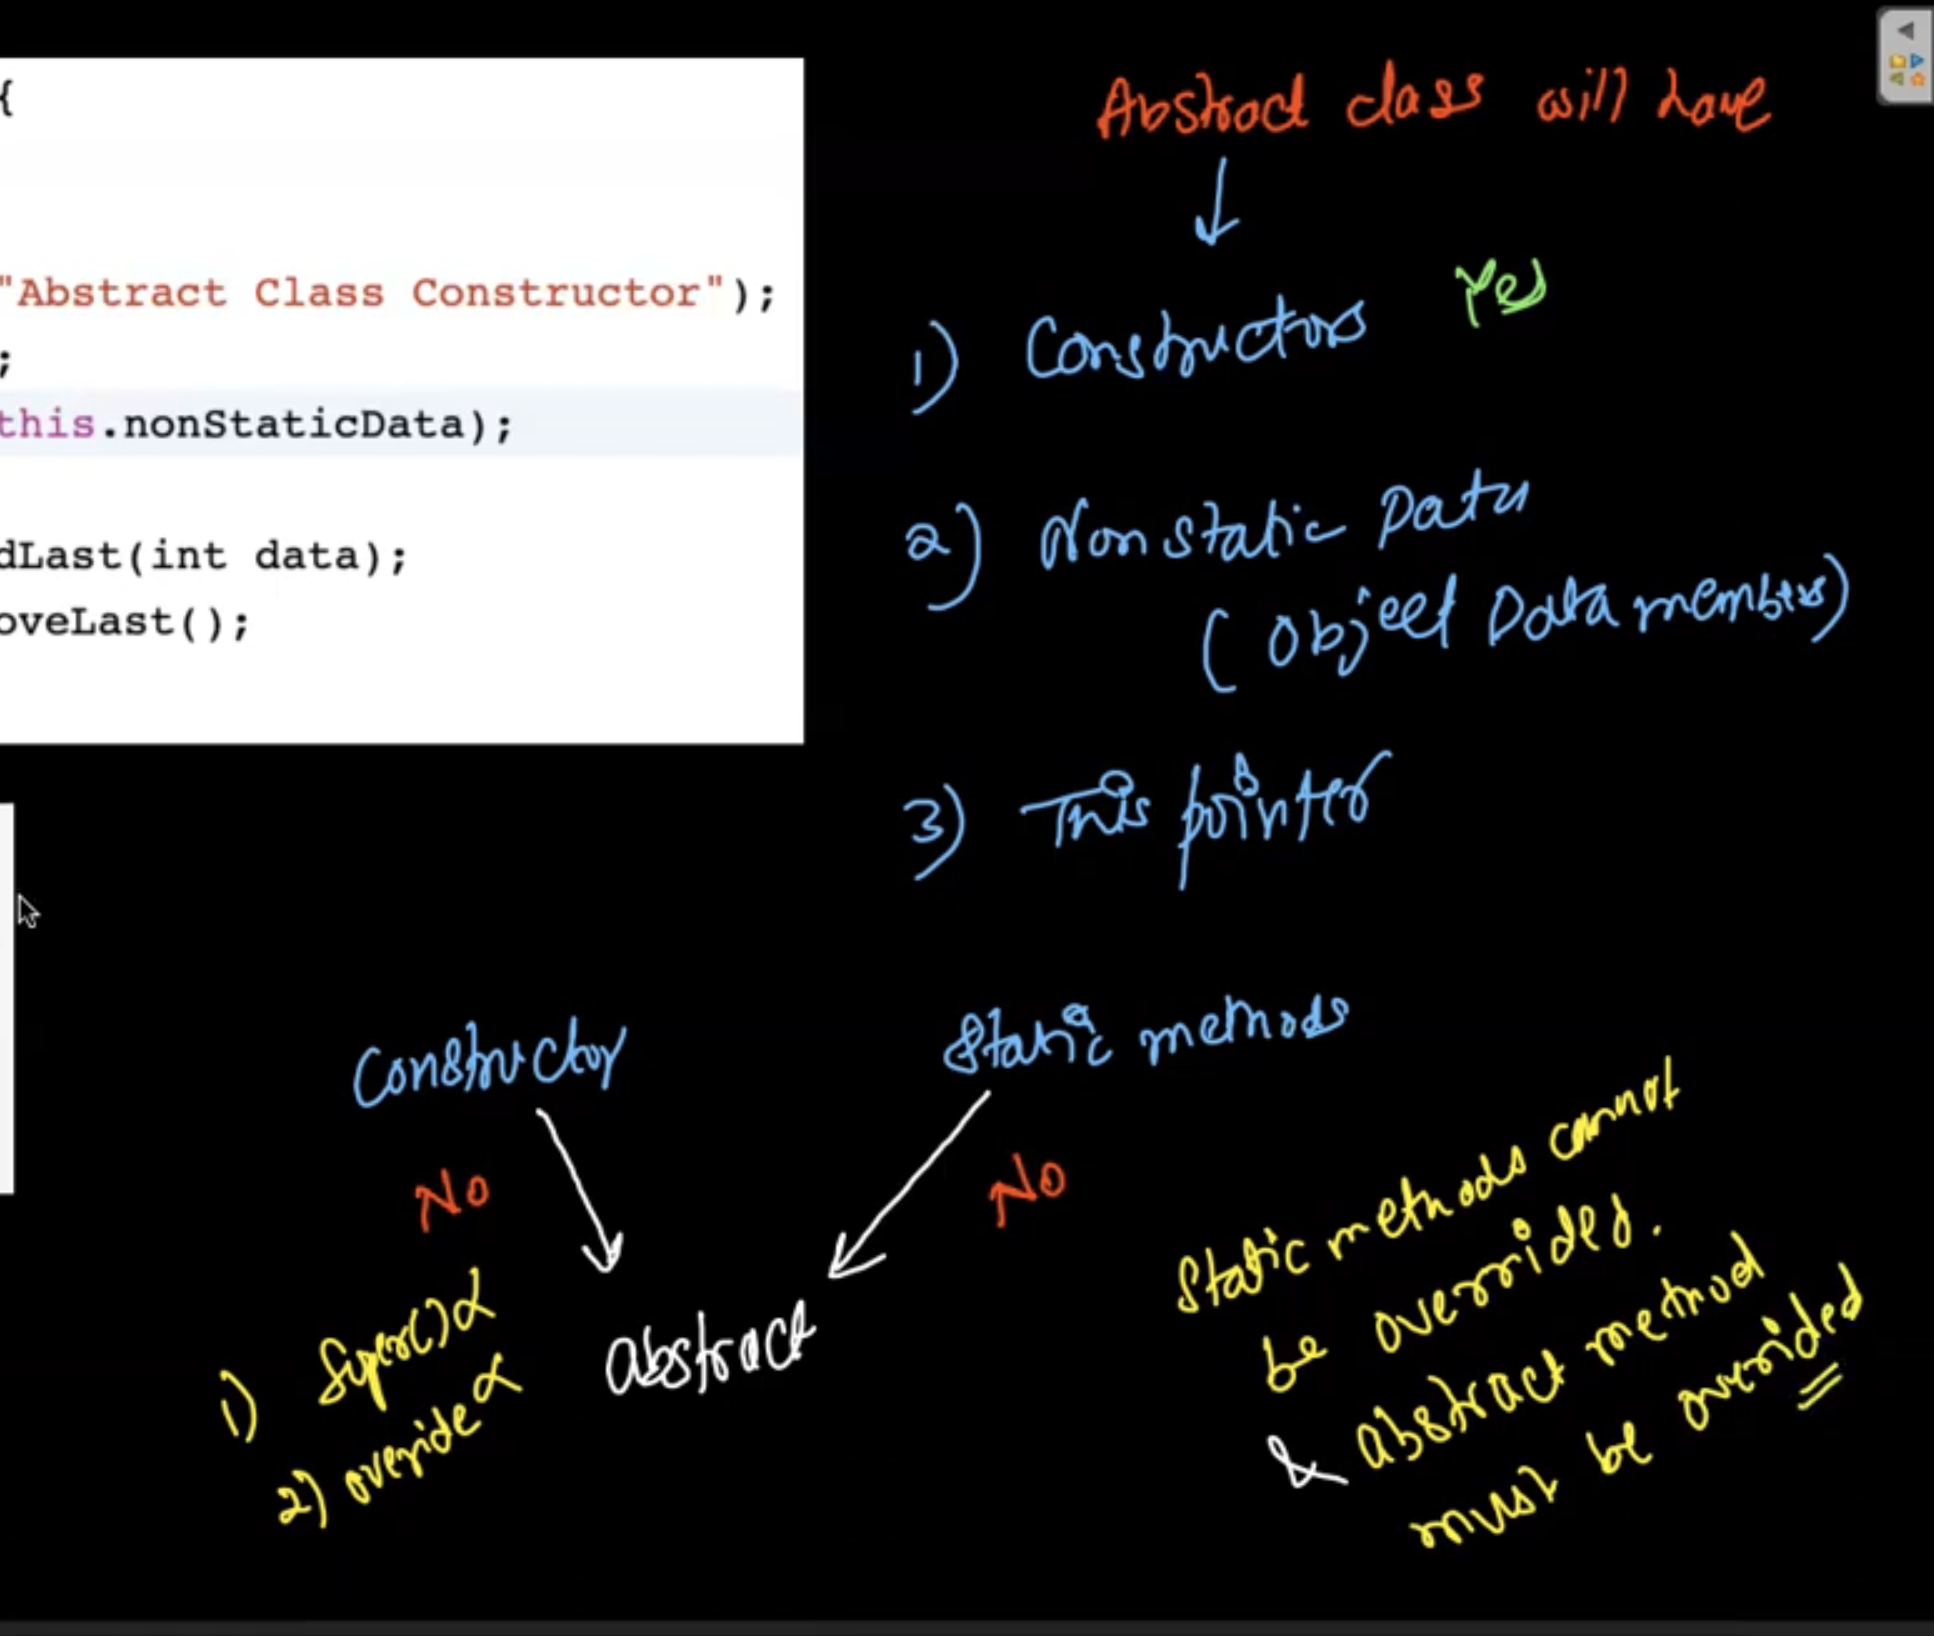 {
"Abstract Class Constructor");
;
this.nonStaticData);
dLast(int data);
oveLast();
Abstract class will have
1) Constructors Yes
2) Nonstatic Data
(Object Data members)
3) This pointer
Constructor
Static methods
No
No
abstract
1) Super()
2) override
Static methods cannot
be overrided.
& abstract method
must be overrided